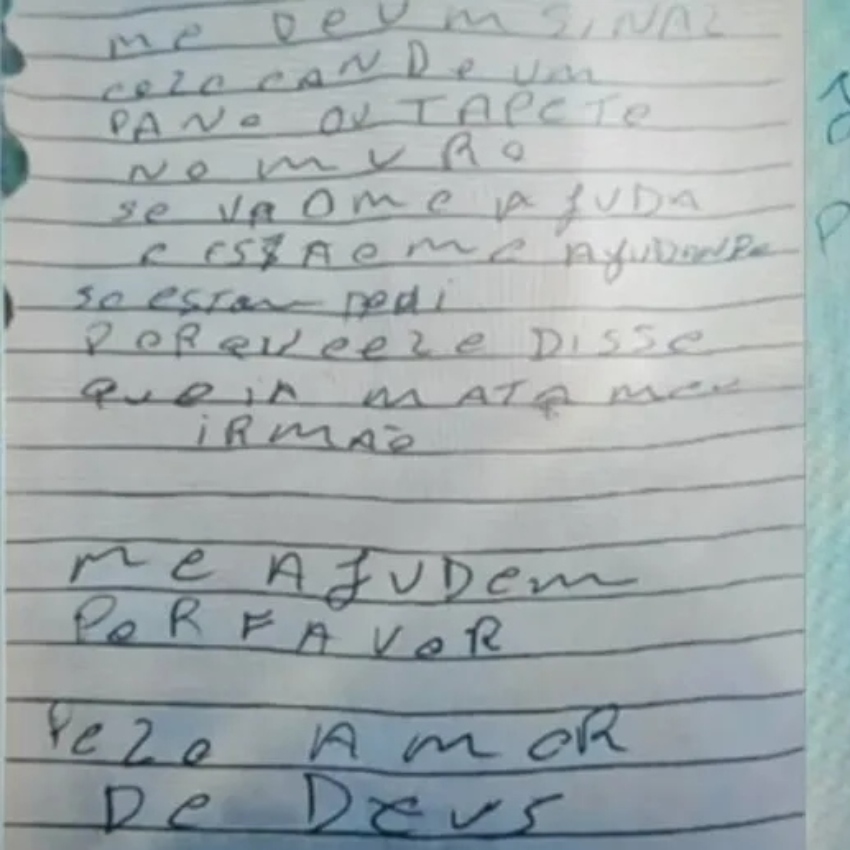 me De UM SiNAl
colocANDo um
PANo OU TAPeTe
No mURo
se VAO me AjUDA
e esTAO me AjUDANDo
so estou pedi
PoRque ele Disse
que iA mATA meu
iRmão
me AjUDem
PoR FAVoR
Pelo AmoR
De Deus